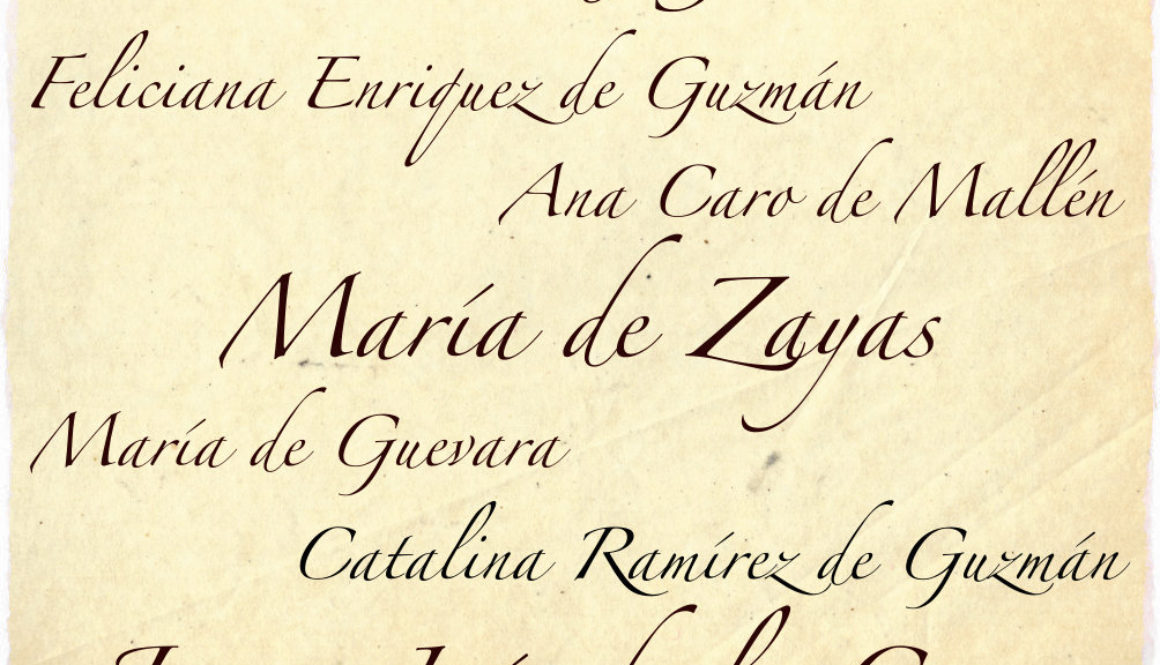 Feliciana Enriquez de Guzmán
Ana Caro de Mallén
María de Zayas
María de Guevara
Catalina Ramírez de Guzmán